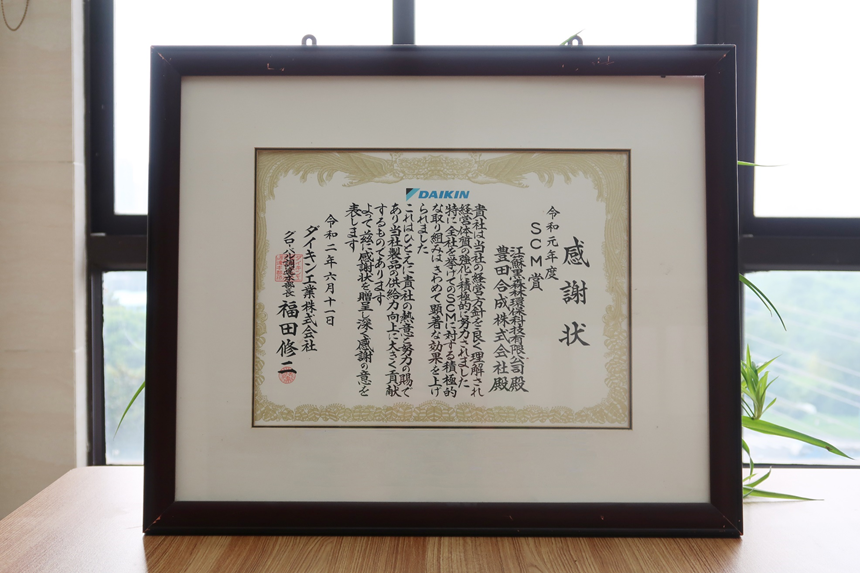 DAIKIN
感謝状
令和元年度
SCM賞
江蘇黑森林環保科技有限公司殿
豊田合成株式会社殿
貴社は当社の経営方針を良く理解され
経営体質の強化に積極的に努力されました
特に全社を挙げてのSCMに対する積極的
な取り組みはきわめて顕著な効果を上げ
られました
これはひとえに貴社の熱意と努力の賜で
あり当社製品の供給力向上に大きく貢献
するものであります
よって茲に感謝状を贈呈し深く感謝の意を
表します
令和二年六月十一日
ダイキン工業株式会社
グローバル調達本部長 福田修二